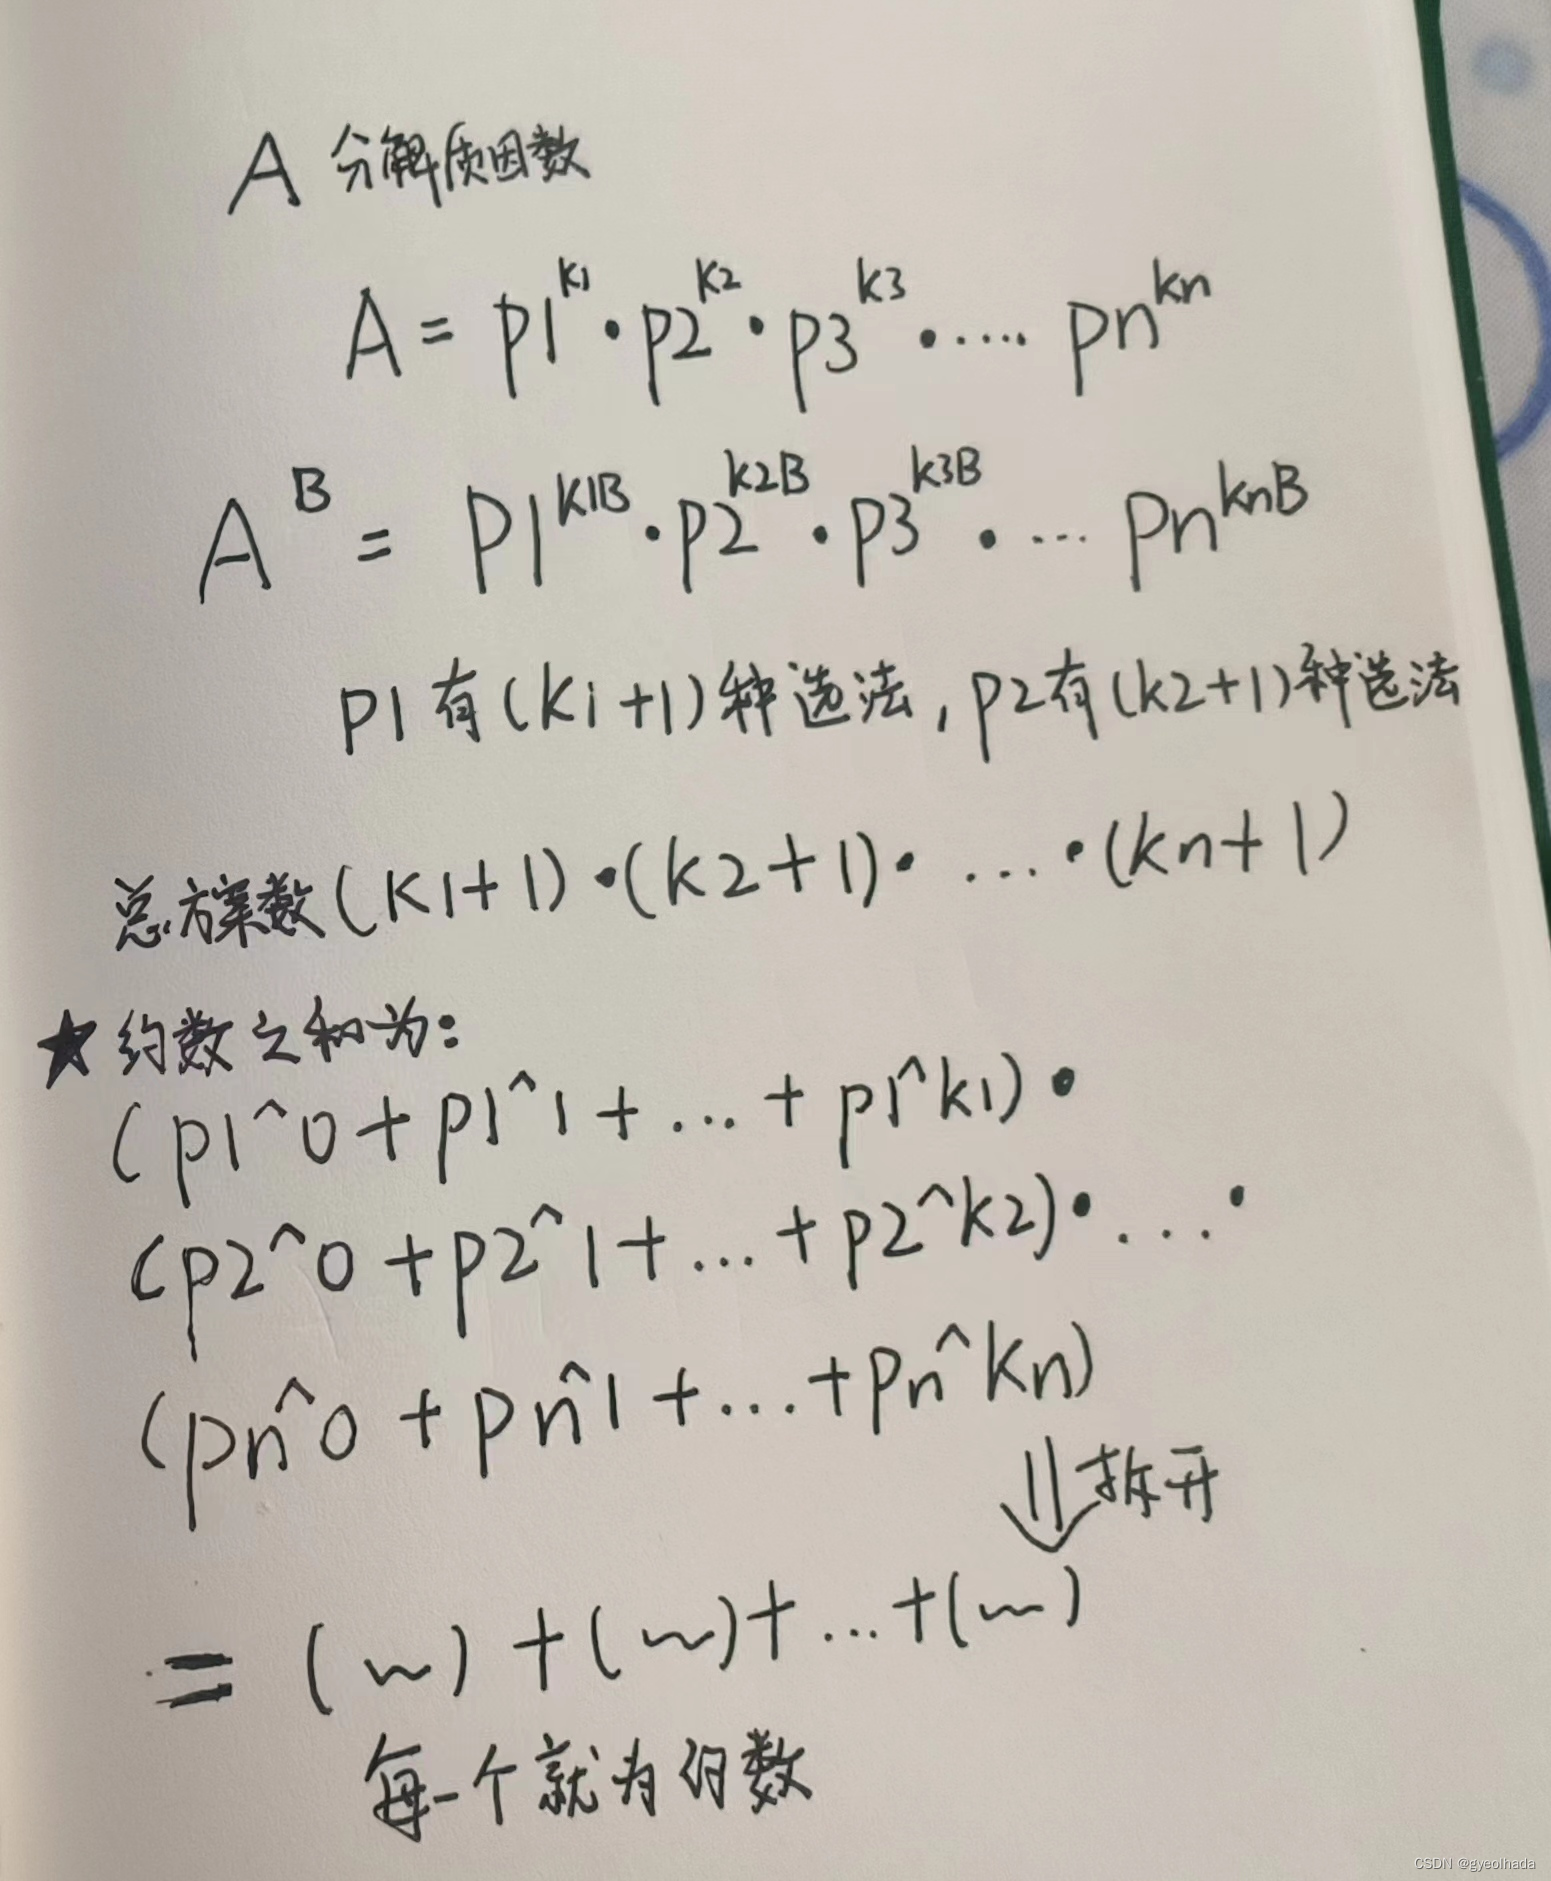 A 分解质因数
A = p1^k1 · p2^k2 · p3^k3 · ..... pn^kn
A^B = p1^k1B · p2^k2B · p3^k3B · ... pn^knB
p1有(k1+1)种选法,p2有(k2+1)种选法
总方案数(k1+1)·(k2+1)· ... ·(kn+1)
★ 约数之和为:
(p1^0+p1^1+...+p1^k1)·
(p2^0+p2^1+...+p2^k2)· ... ·
(pn^0+pn^1+...+pn^kn)
⇓拆开
= (~)+(~)+...+(~)
每一个就为约数
CSDN @gyeolhada